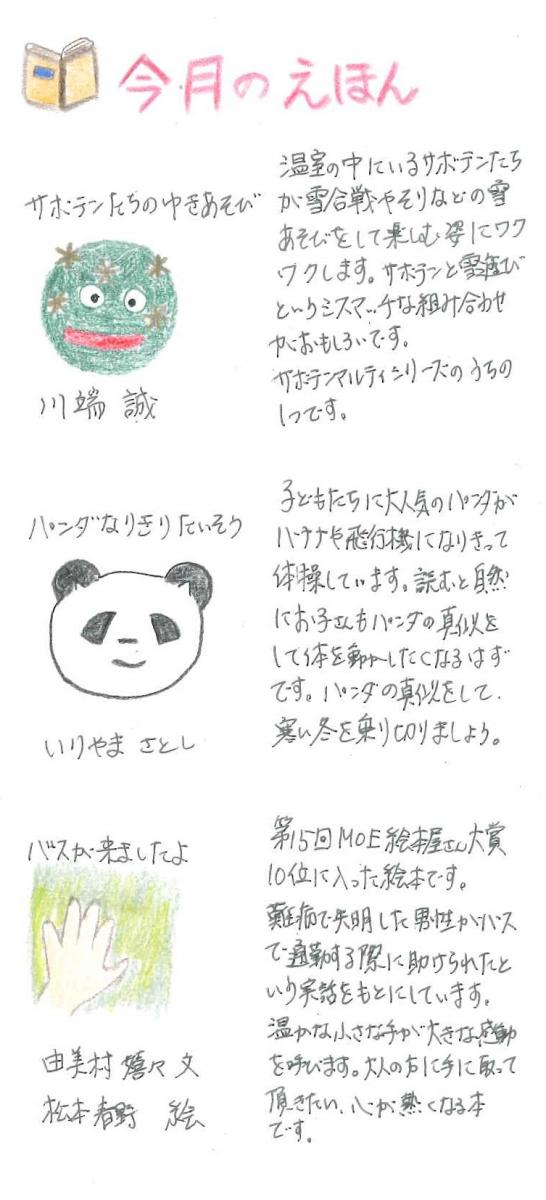 今月のえほん
サボテンたちのゆきあそび
川端 誠
温室の中にいるサボテンたち
が雪合戦やそりなどの雪
あそびをして楽しむ姿にワク
ワクします。サボテンと雪遊び
というミスマッチな組み合わせ
がおもしろいです。
サボテンマルティシリーズのうちの
1つです。
パンダなりきりたいそう
いりやま さとし
子どもたちに大人気のパンダが
バナナや飛行機になりきって
体操しています。読むと自然
にお子さんもパンダの真似を
して体を動かしたくなるはず
です。パンダの真似をして、
寒い冬を乗り切りましょう。
バスが来ましたよ
由美村 嬉々 文
松本春野 絵
第15回MOE絵本屋さん大賞
10位に入った絵本です。
難病で失明した男性がバス
で通勤する際に助けられたと
いう実話をもとにしています。
温かな小さな手が大きな感動
を呼びます。大人の方に手に取って
頂きたい、心が熱くなる本
です。